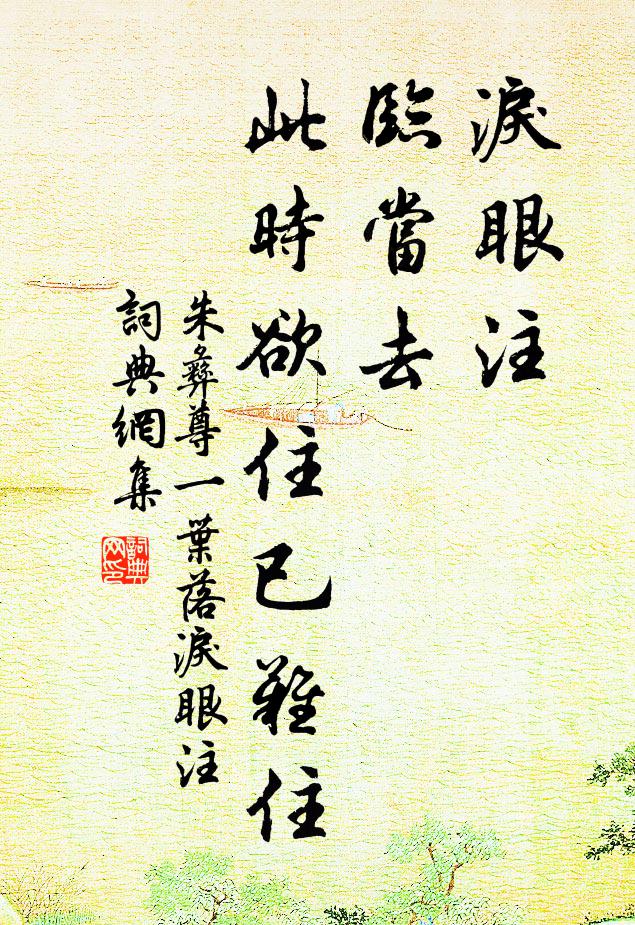 淚眼注
臨當去
此時欲住已難住
朱彝尊一葉落淚眼注
詞典網集
詞典网印